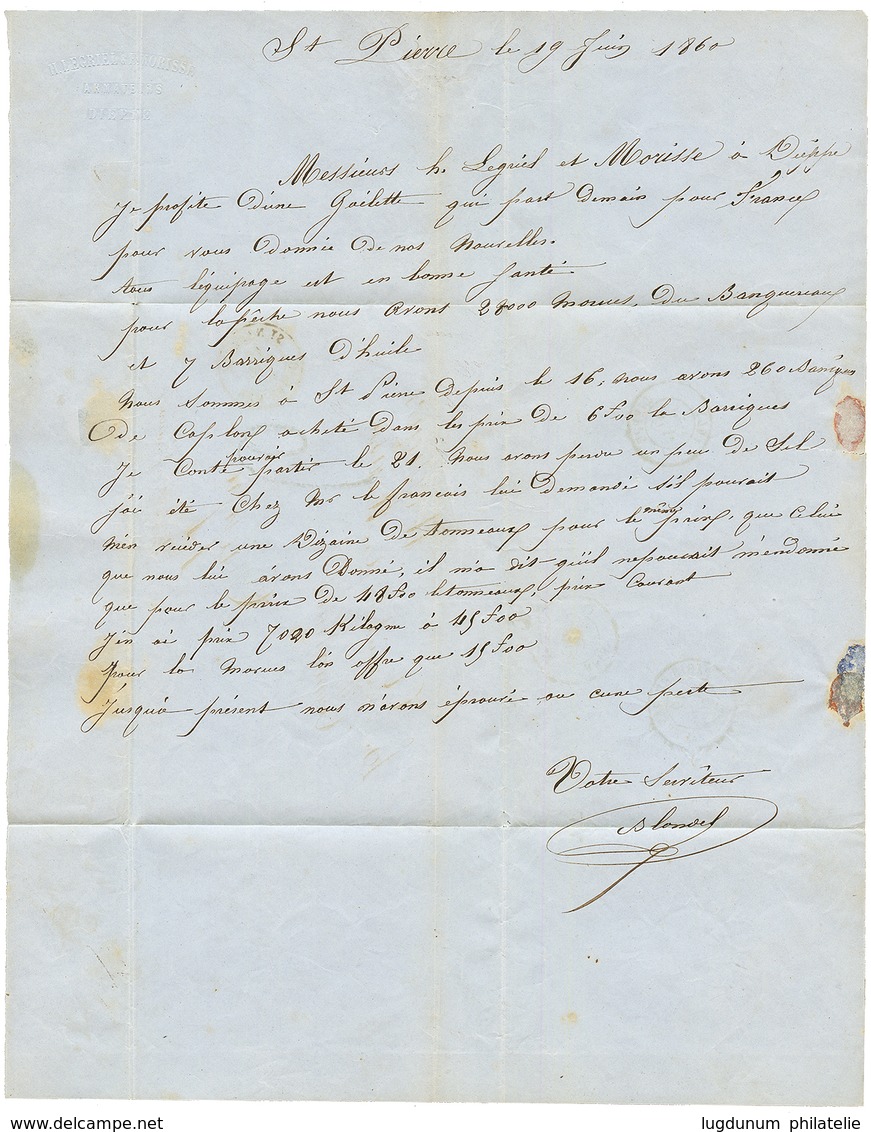 H. LEGRIEL ET MORISSE
ARMATEURS
DIEPPE
St Pierre le 19 Juin 1860
Messieurs h. Legriel et Morisse à Dieppe
Je profite d'une Goëlette qui part demain pour France
pour vous donnée de nos Nouvelles.
tous l'équipage est en bonne Santé
pour lapêche nous avons 28000 Morues, du Banquereau
et 7 Barriques d'huile
Nous Sommes à St Pierre depuis le 16, nous avons 260 Bariques
de Caplons acheté dans les prix de 6f00 la Barriques
Je Conte pouvoir partir le 21. Nous avons perdu un peu de Sel
j'ai été Chez Mr le francois lui demandé s'il pourait
m'en recéder une Dizaine de tonneaux pour le même prix, que celui
que nous lui avons Donné, il m'a dit qu'il nepouvait m'endonné
que pour le prix de 48f00 letonneaux, prix Courant
J'en ai prix 7020 Kilogme à 45f00
pour la Morues l'on offre que 15f00
Jusqu'à présent nous n'avons éprouvé au cune perte
Votre Servîteur
Blondel
lugdunum philatelie